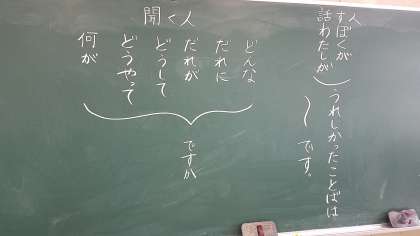 話す人
ぼくが
わたしが
うれしかったことばは
〜です。
聞く人
どんな
だれに
だれが
どうして
どうやって
何が
ですか